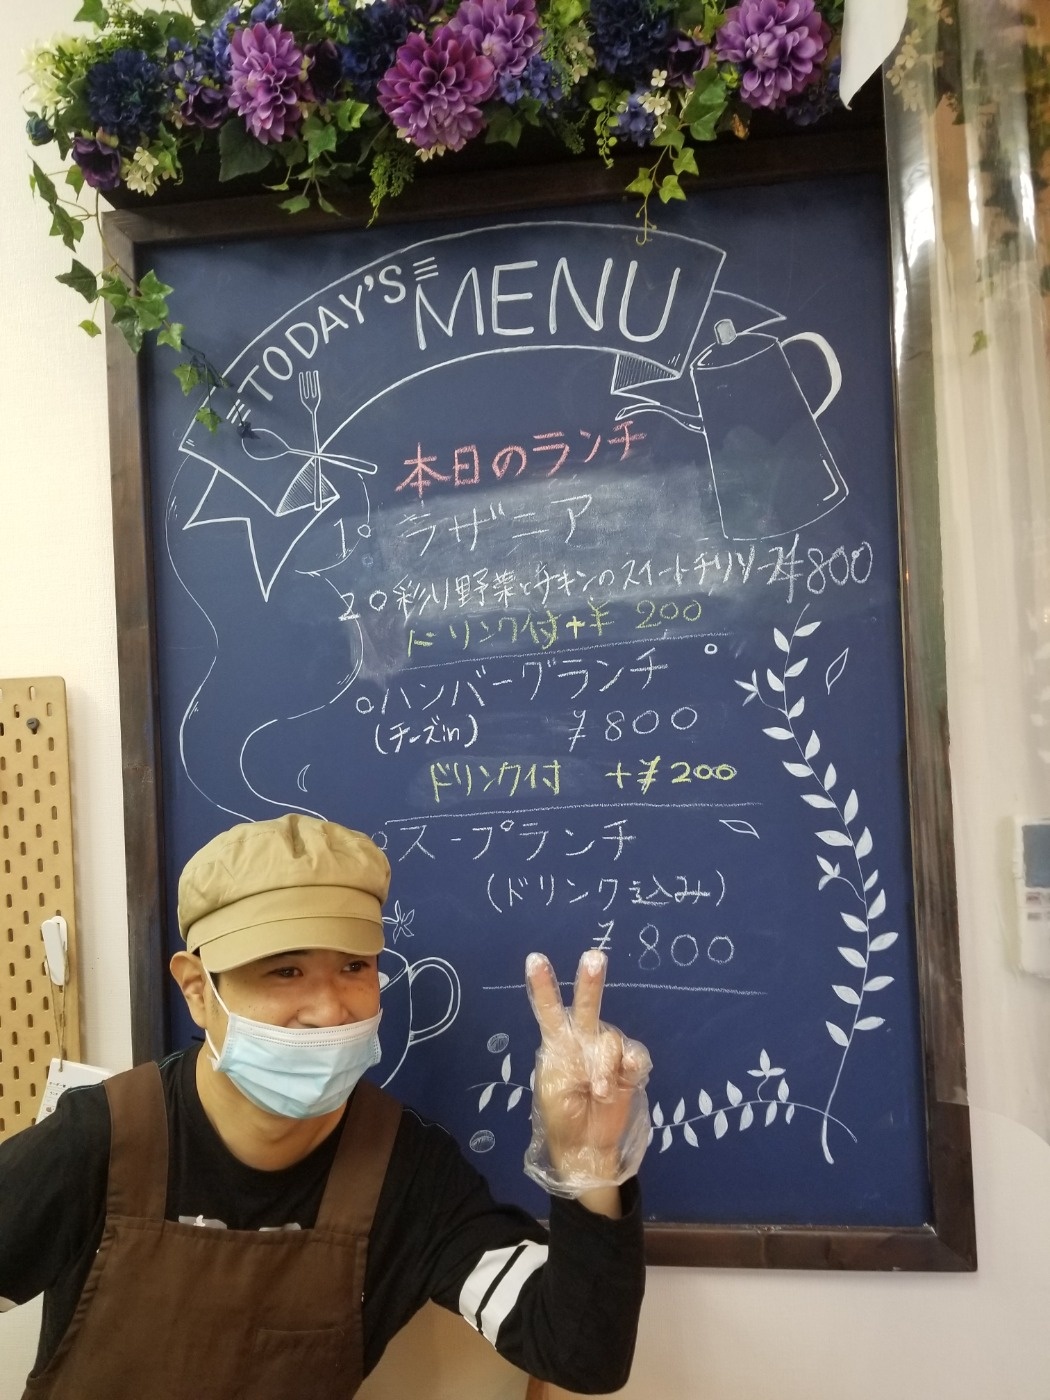 TODAY'S MENU
本日のランチ
1. ラザニア
2. 彩り野菜とチキンのスイートチリソース ¥800
ドリンク付+¥ 200
○ハンバーグランチ
(チーズin) ¥800
ドリンク付 +¥200
○スープランチ
(ドリンク込み)
¥800